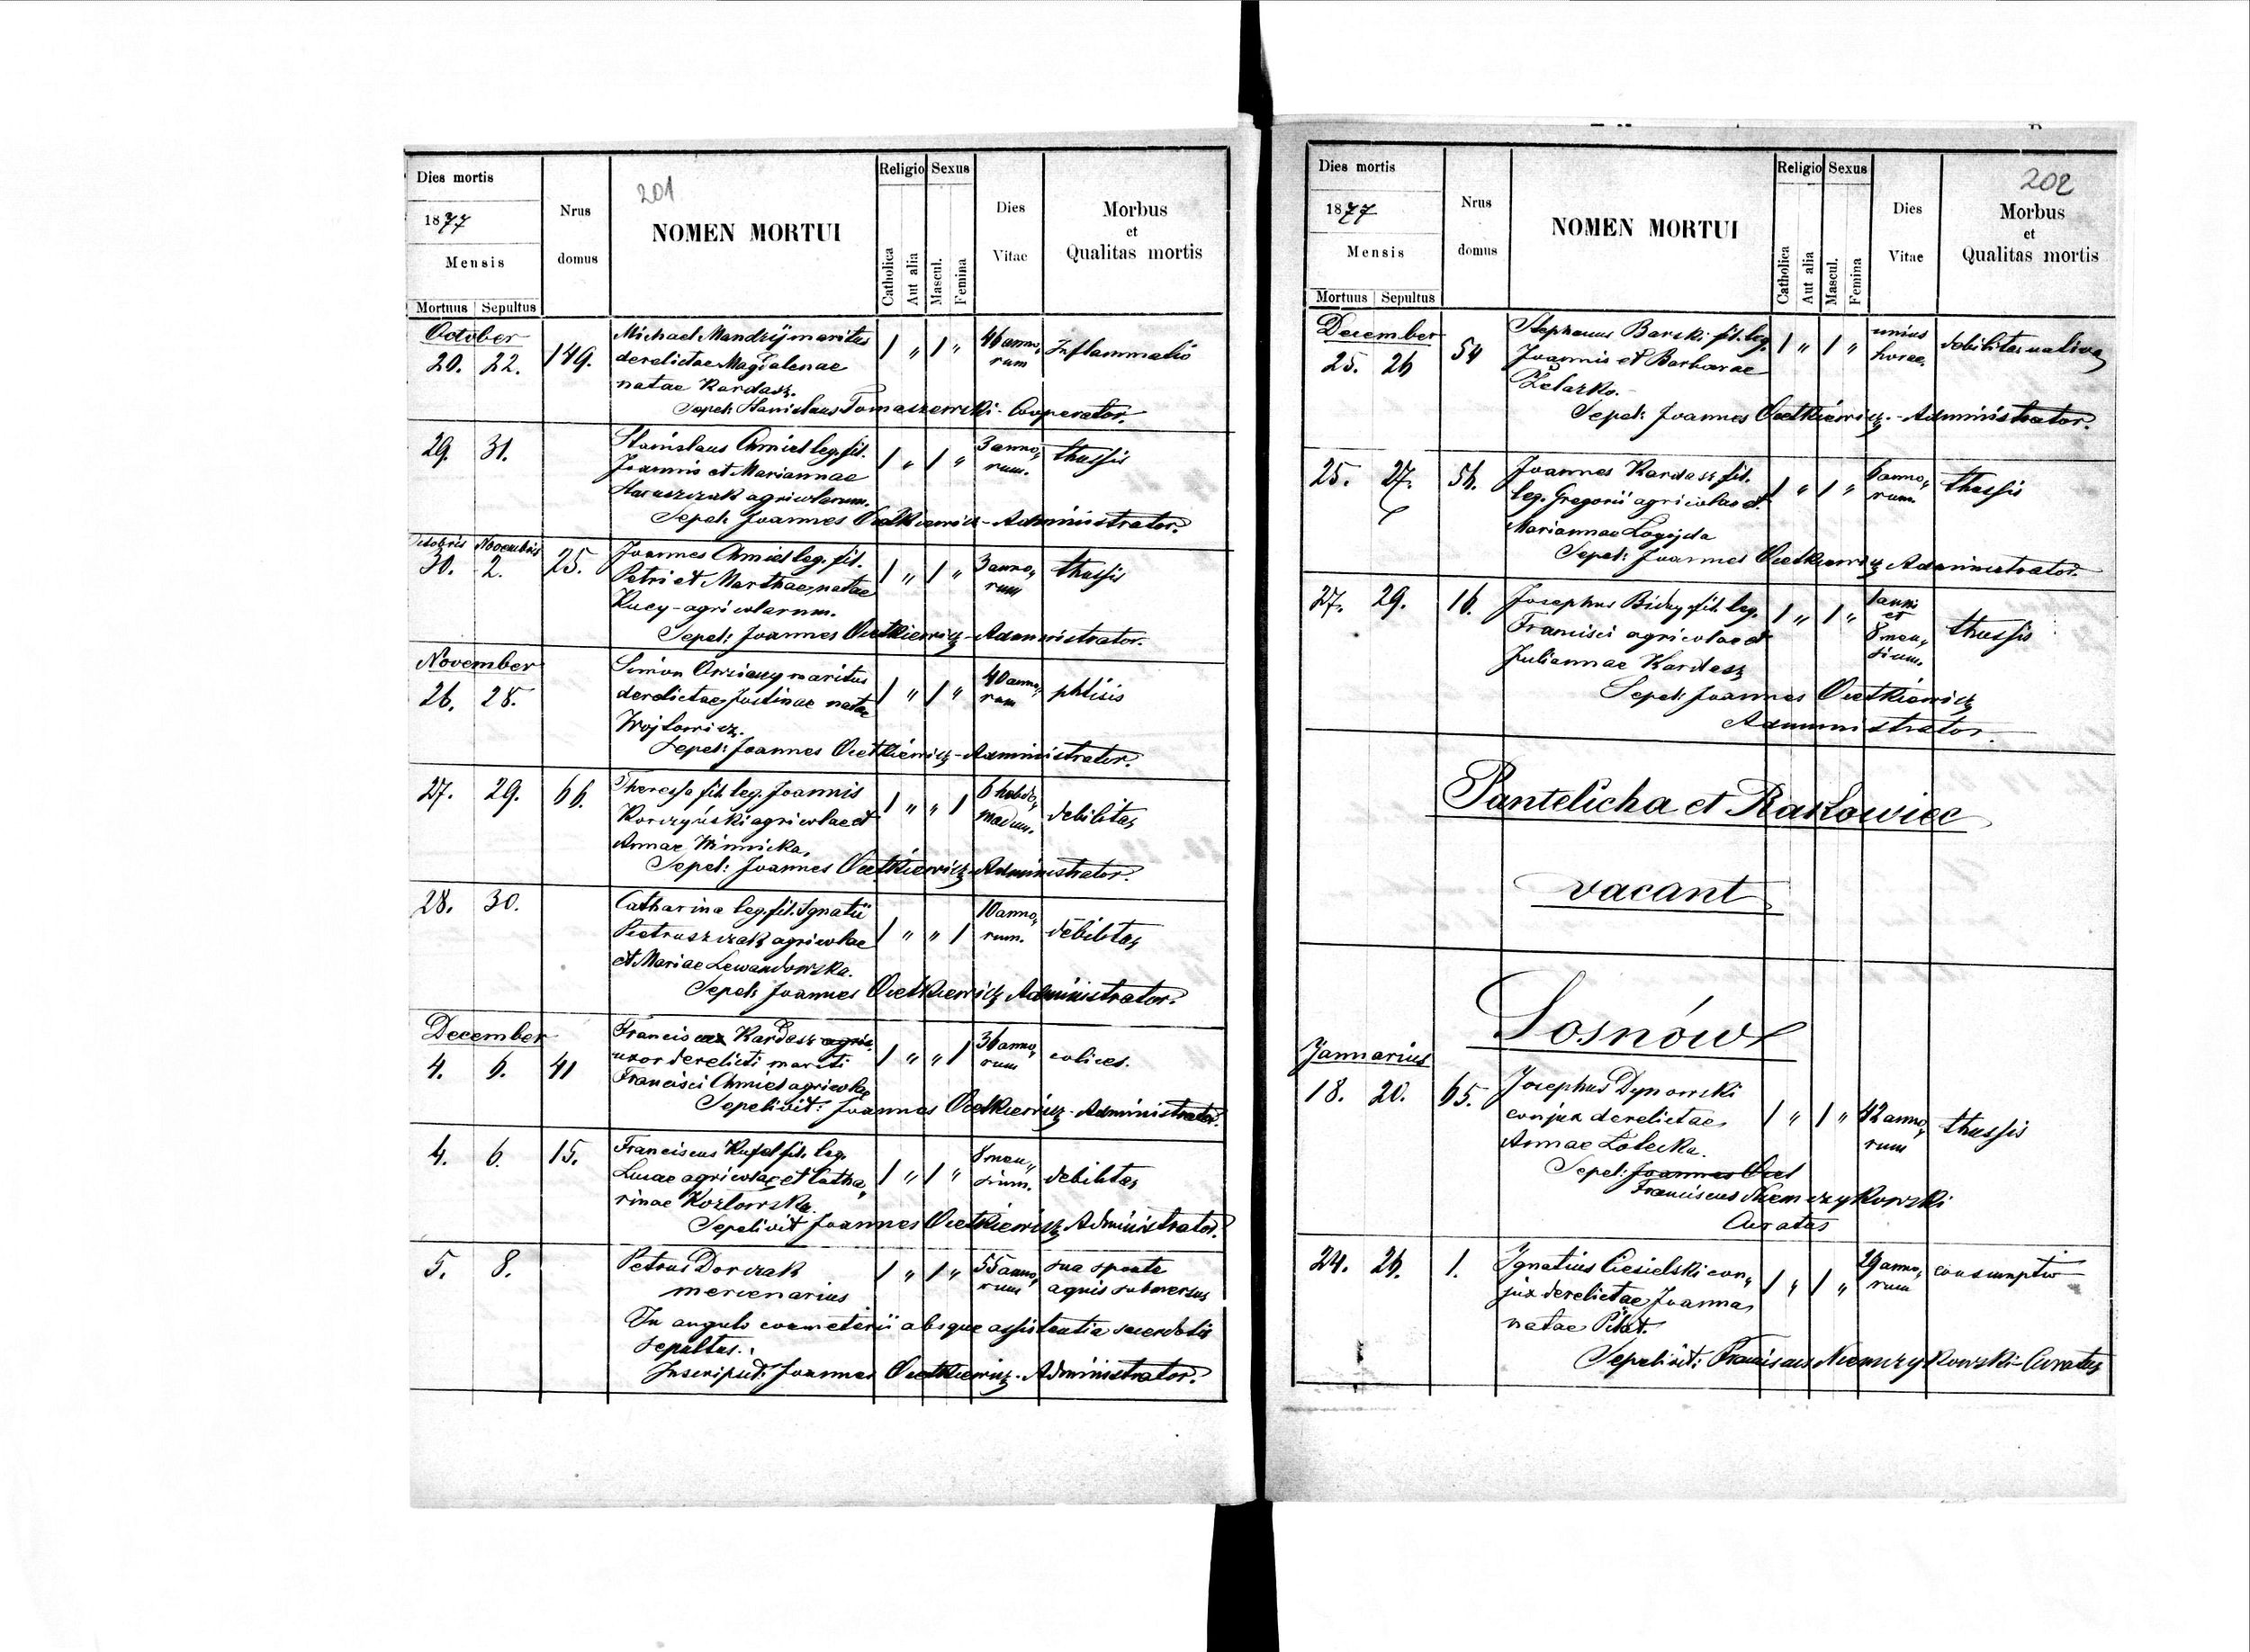 201
Dies mortis
1877
Mensis
Mortuus Sepultus
Nrus
domus
NOMEN MORTUI
Religio
Catholica
Aut alia
Sexus
Mascul.
Femina
Dies
Vitae
Morbus
et
Qualitas mortis
October
20. 22. 149.
Michael Mandzij maritus
derelictae Magdalenae
natae Kardasz.
Sepel: Stanislaus Tomaszewski - Cooperator.
1 " 1 "
46 anno,,
rum
Inflammatio
29. 31.
Stanislaus Chmiel leg. fil.
Joannis et Mariannae
Haraszczak agricolarum.
Sepel: Joannes Ocetkiewicz - Administrator.
1 " 1 "
3 anno,,
rum.
thussis
Octobris Novembris
30. 2. 25.
Joannes Chmiel leg. fil.
Petri et Marthae natae
Kucy - agricolarum.
Sepel: Joannes Ocetkiewicz - Administrator.
1 " 1 "
3 anno,,
rum
thussis
November
26. 28.
Simon maritus
derelictae Justinae natae
Wojtowicz.
Sepel: Joannes Ocetkiewicz - Administrator.
1 " 1 "
40 anno,,
rum
phtisis
27. 29. 66.
Theressa fil. leg. Joannis
Korczyński agricolae et
Annae Winnicka,
Sepel: Joannes Ocetkiewicz Administrator.
1 " " 1
6 hebdo,,
madum.
debilitas
28. 30.
Catharina leg. fil. Ignatii
Pietruszczak agricolae
et Mariae Lewandowska.
Sepel: Joannes Ocetkiewicz Administrator.
1 " " 1
10 anno,,
rum.
debilitas
December
4. 6. 41
Francisca Kardasz agric.
uxor derelicti mariti
Francisci Chmiel agricolae
Sepelivit: Joannes Ocetkiewicz - Administrator.
1 " " 1
36 anno,,
rum
colices.
4. 6. 15.
Franciscus Kufel fil. leg.
Lucae agricolae et Catha,,
rinae Kozłowska.
Sepelivit Joannes Ocetkiewicz Administrator.
1 " 1 "
8 men,,
sium.
debilitas
5. 8.
Petrus Dorczak
mercenarius
1 " 1 "
55 anno,,
rum
sua sponte
aquis submersus
In angulo coemeterii absque assistentia sacerdotis
sepultus.
Inscripsit: Joannes Ocetkiewicz - Administrator.
202
Dies mortis
1877
Mensis
Mortuus Sepultus
Nrus
domus
NOMEN MORTUI
Religio
Catholica
Aut alia
Sexus
Mascul.
Femina
Dies
Vitae
Morbus
et
Qualitas mortis
December
25. 26 54
Stephanus Barski fil. leg.
Joannis et Barbarae
Żelazko.
Sepel: Joannes Ocetkiewicz - Administrator.
1 " 1 "
unius
horae.
debilitas nativa
25. 27. 56.
Joannes Kardasz fil.
leg. Gregorii agricolae et
Mariannae Łagojda
Sepel: Joannes Ocetkiewicz Administrator.
1 " 1 "
6 anno,,
rum.
thussis
27. 29. 16.
Josephus Bidny fil. leg.
Francisci agricolae et
Juliannae Kardasz
Sepel: Joannes Ocetkiewicz
Administrator.
1 " 1 "
1 anni
et
8 men,,
sium.
thussis
Pantelicha et Rakowiec
vacant
Sosnów
Januarius
18. 20. 65.
Josephus Dynowski
conjux derelictae
Annae Łotecka.
Sepel: Joannes Ocet
Franciscus Niemczykowski
Curatus
1 " 1 "
42 anno,,
rum
thussis
24. 26. 1.
Ignatius Ciesielski con,,
jux derelictae Joanna
natae Pilat.
Sepelivit: Franciscus Niemczykowski - Curatus
1 " 1 "
29 anno,,
rum
consumptio